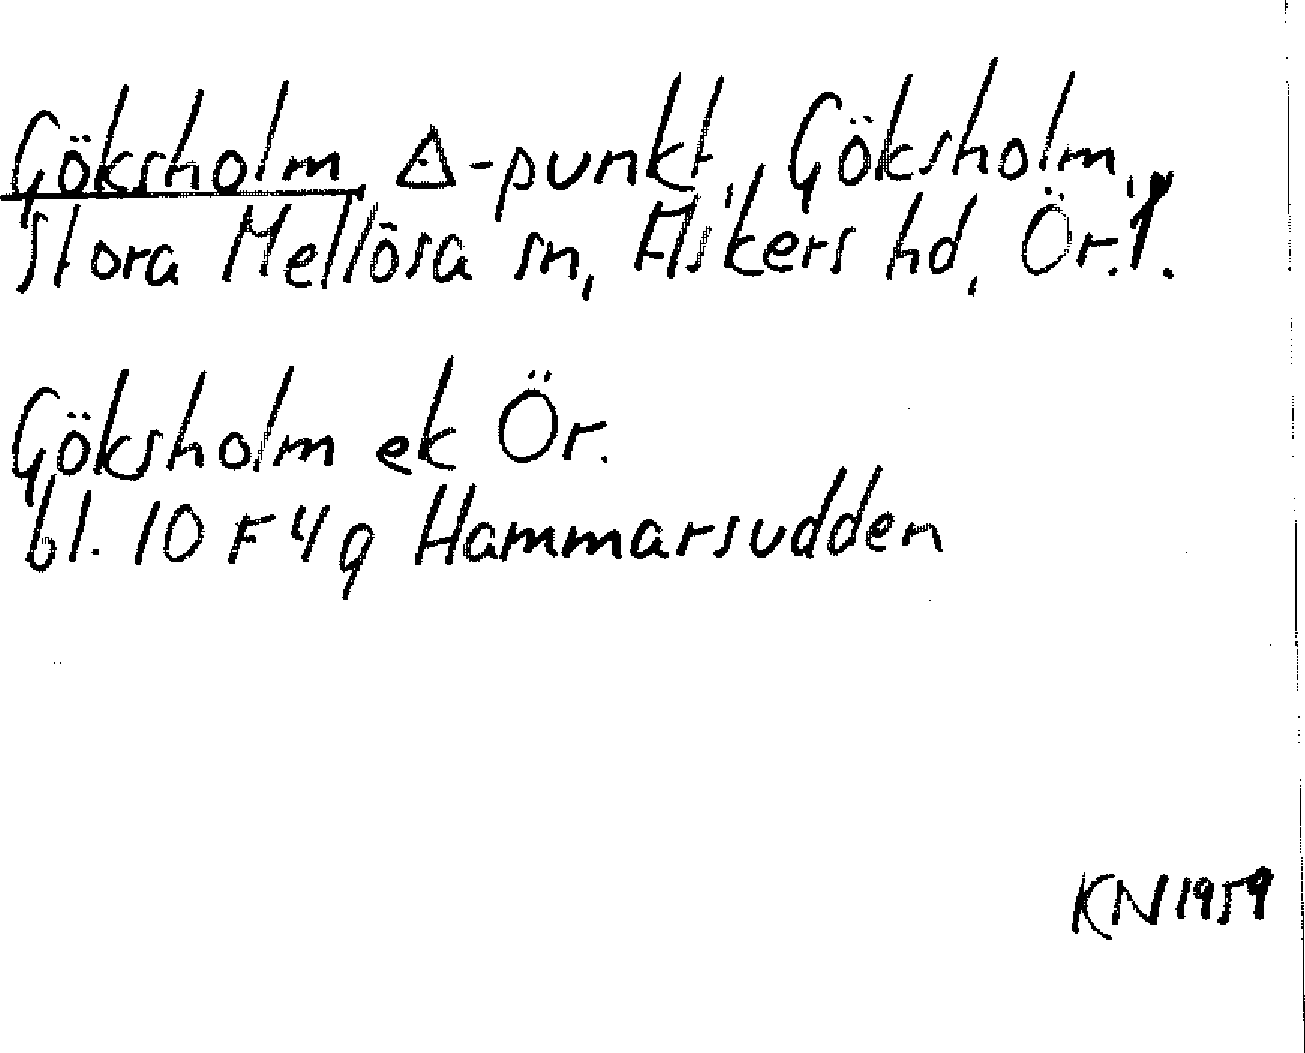 Göksholm, △-punkt, Göksholm,
Stora Mellösa sn, Askers hd, Ör.l.
Göksholm ek Ör.
bl. 10 F 4 g Hammarsudden
KN 1959